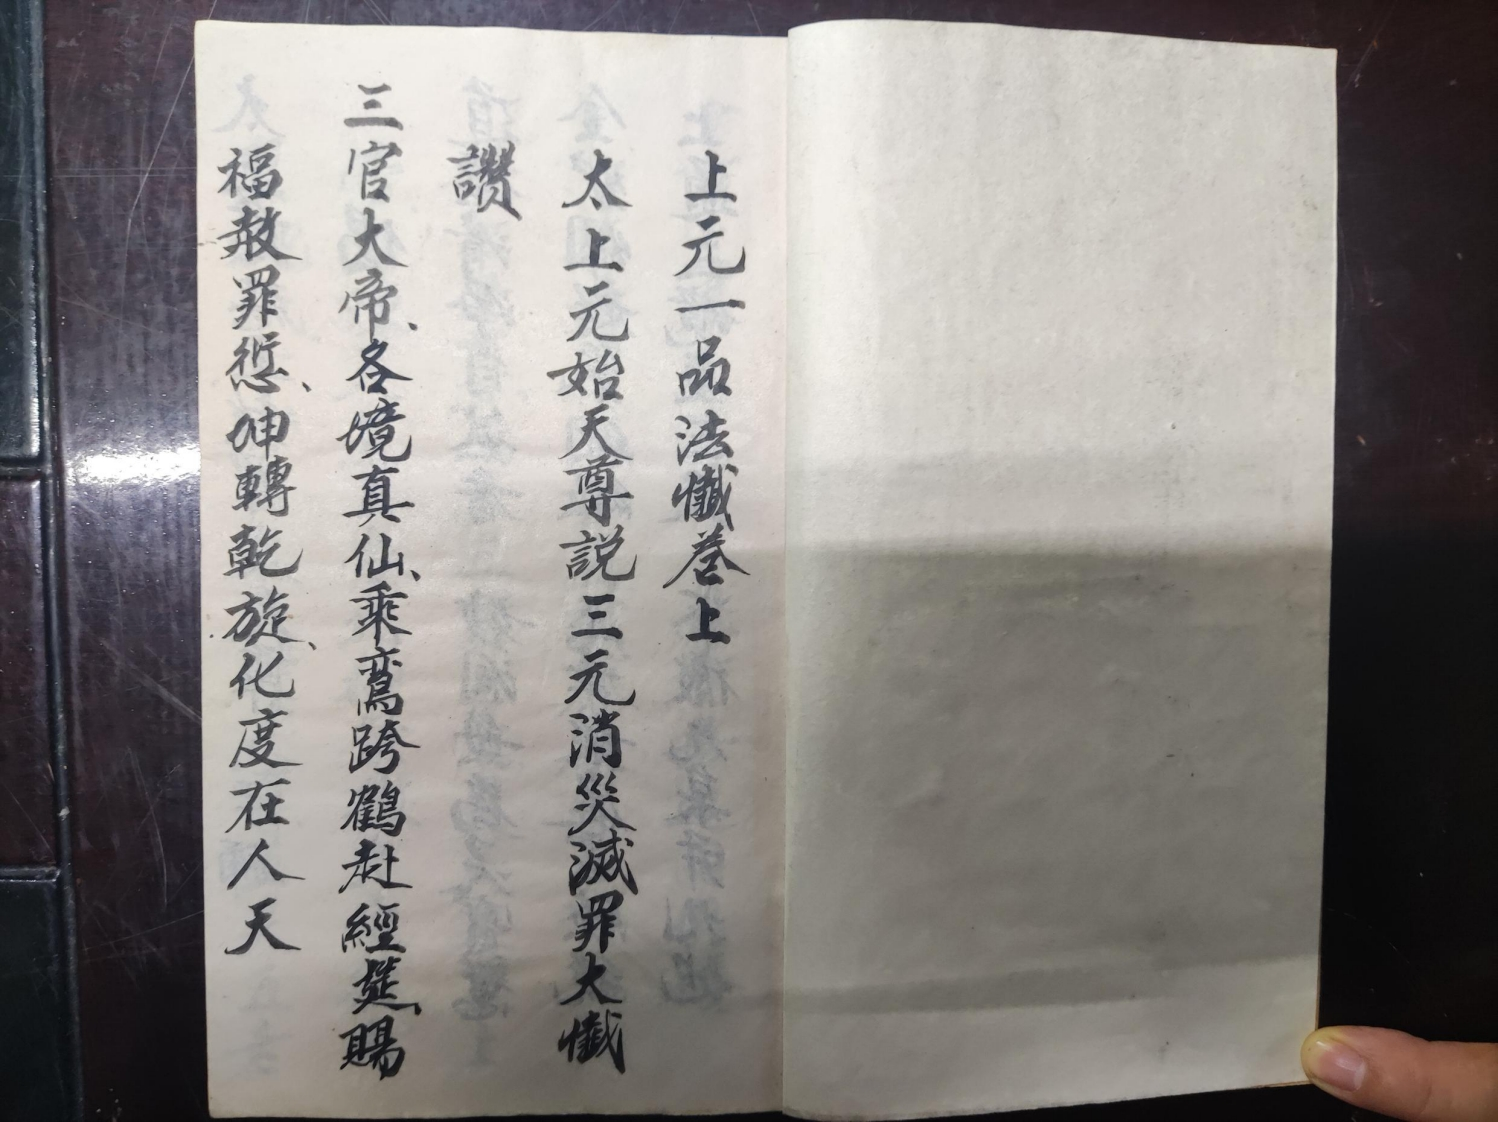 上元一品法懺卷上
太上元始天尊説三元消災滅罪大懺
讚
三官大帝、各境真仙、乘鸞跨鶴赴經筵、賜
福赦罪愆、坤轉乾旋、化度在人天